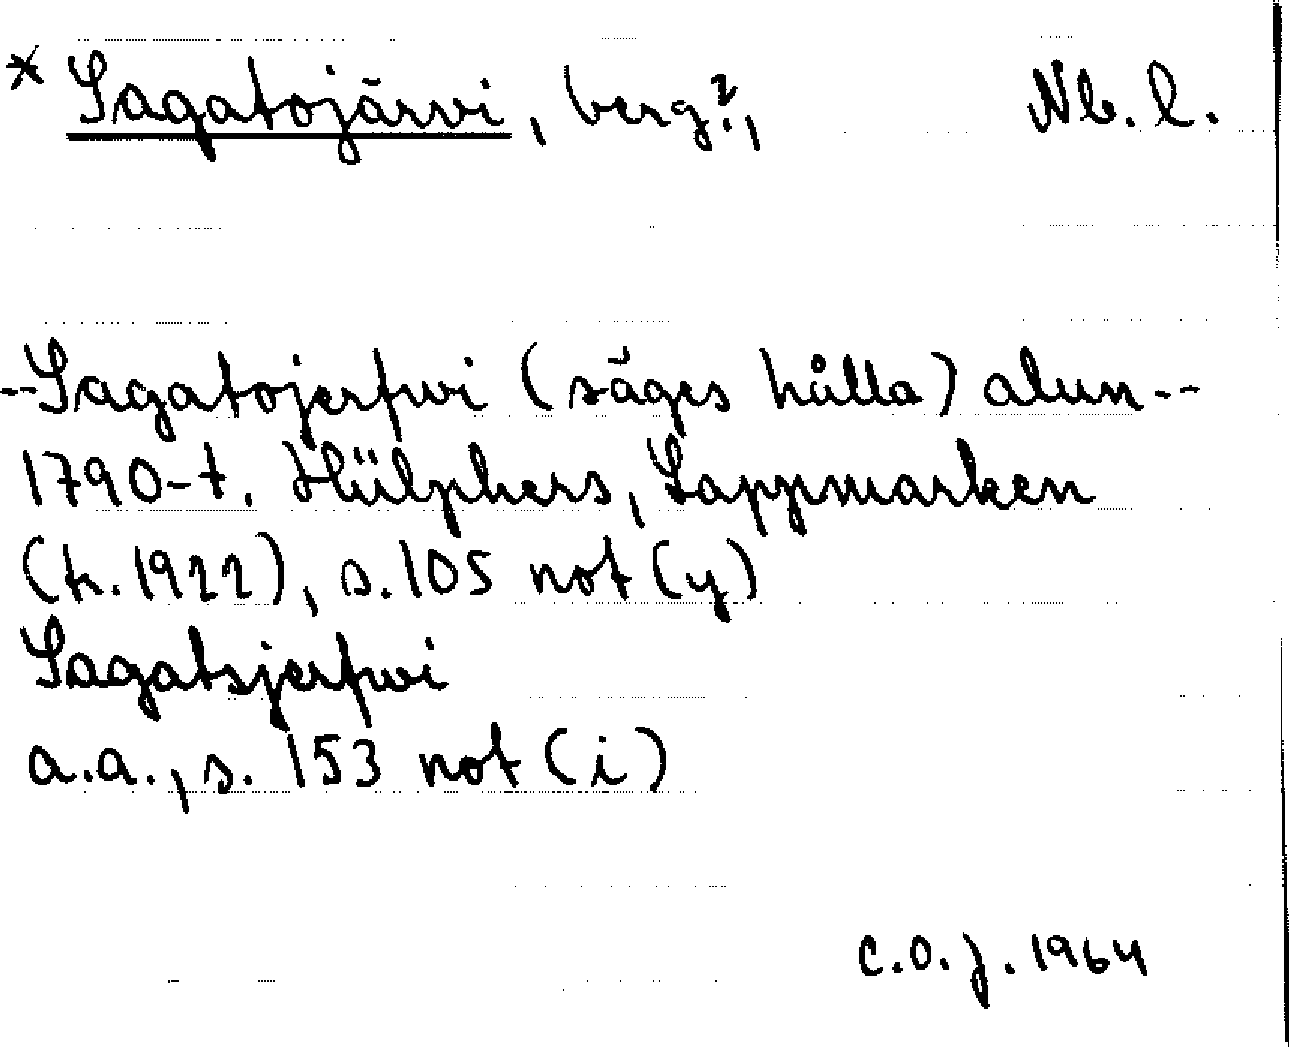 * Sagatojärvi, berg?, Nb. l.
--Sagatojerfwi (säges hålla) alun--
1790-t. Hülphers, Lappmarken
(h. 1922), s. 105 not (y)
Sagatsjerfwi
a.a., s. 153 not (i)
C.O.J. 1964